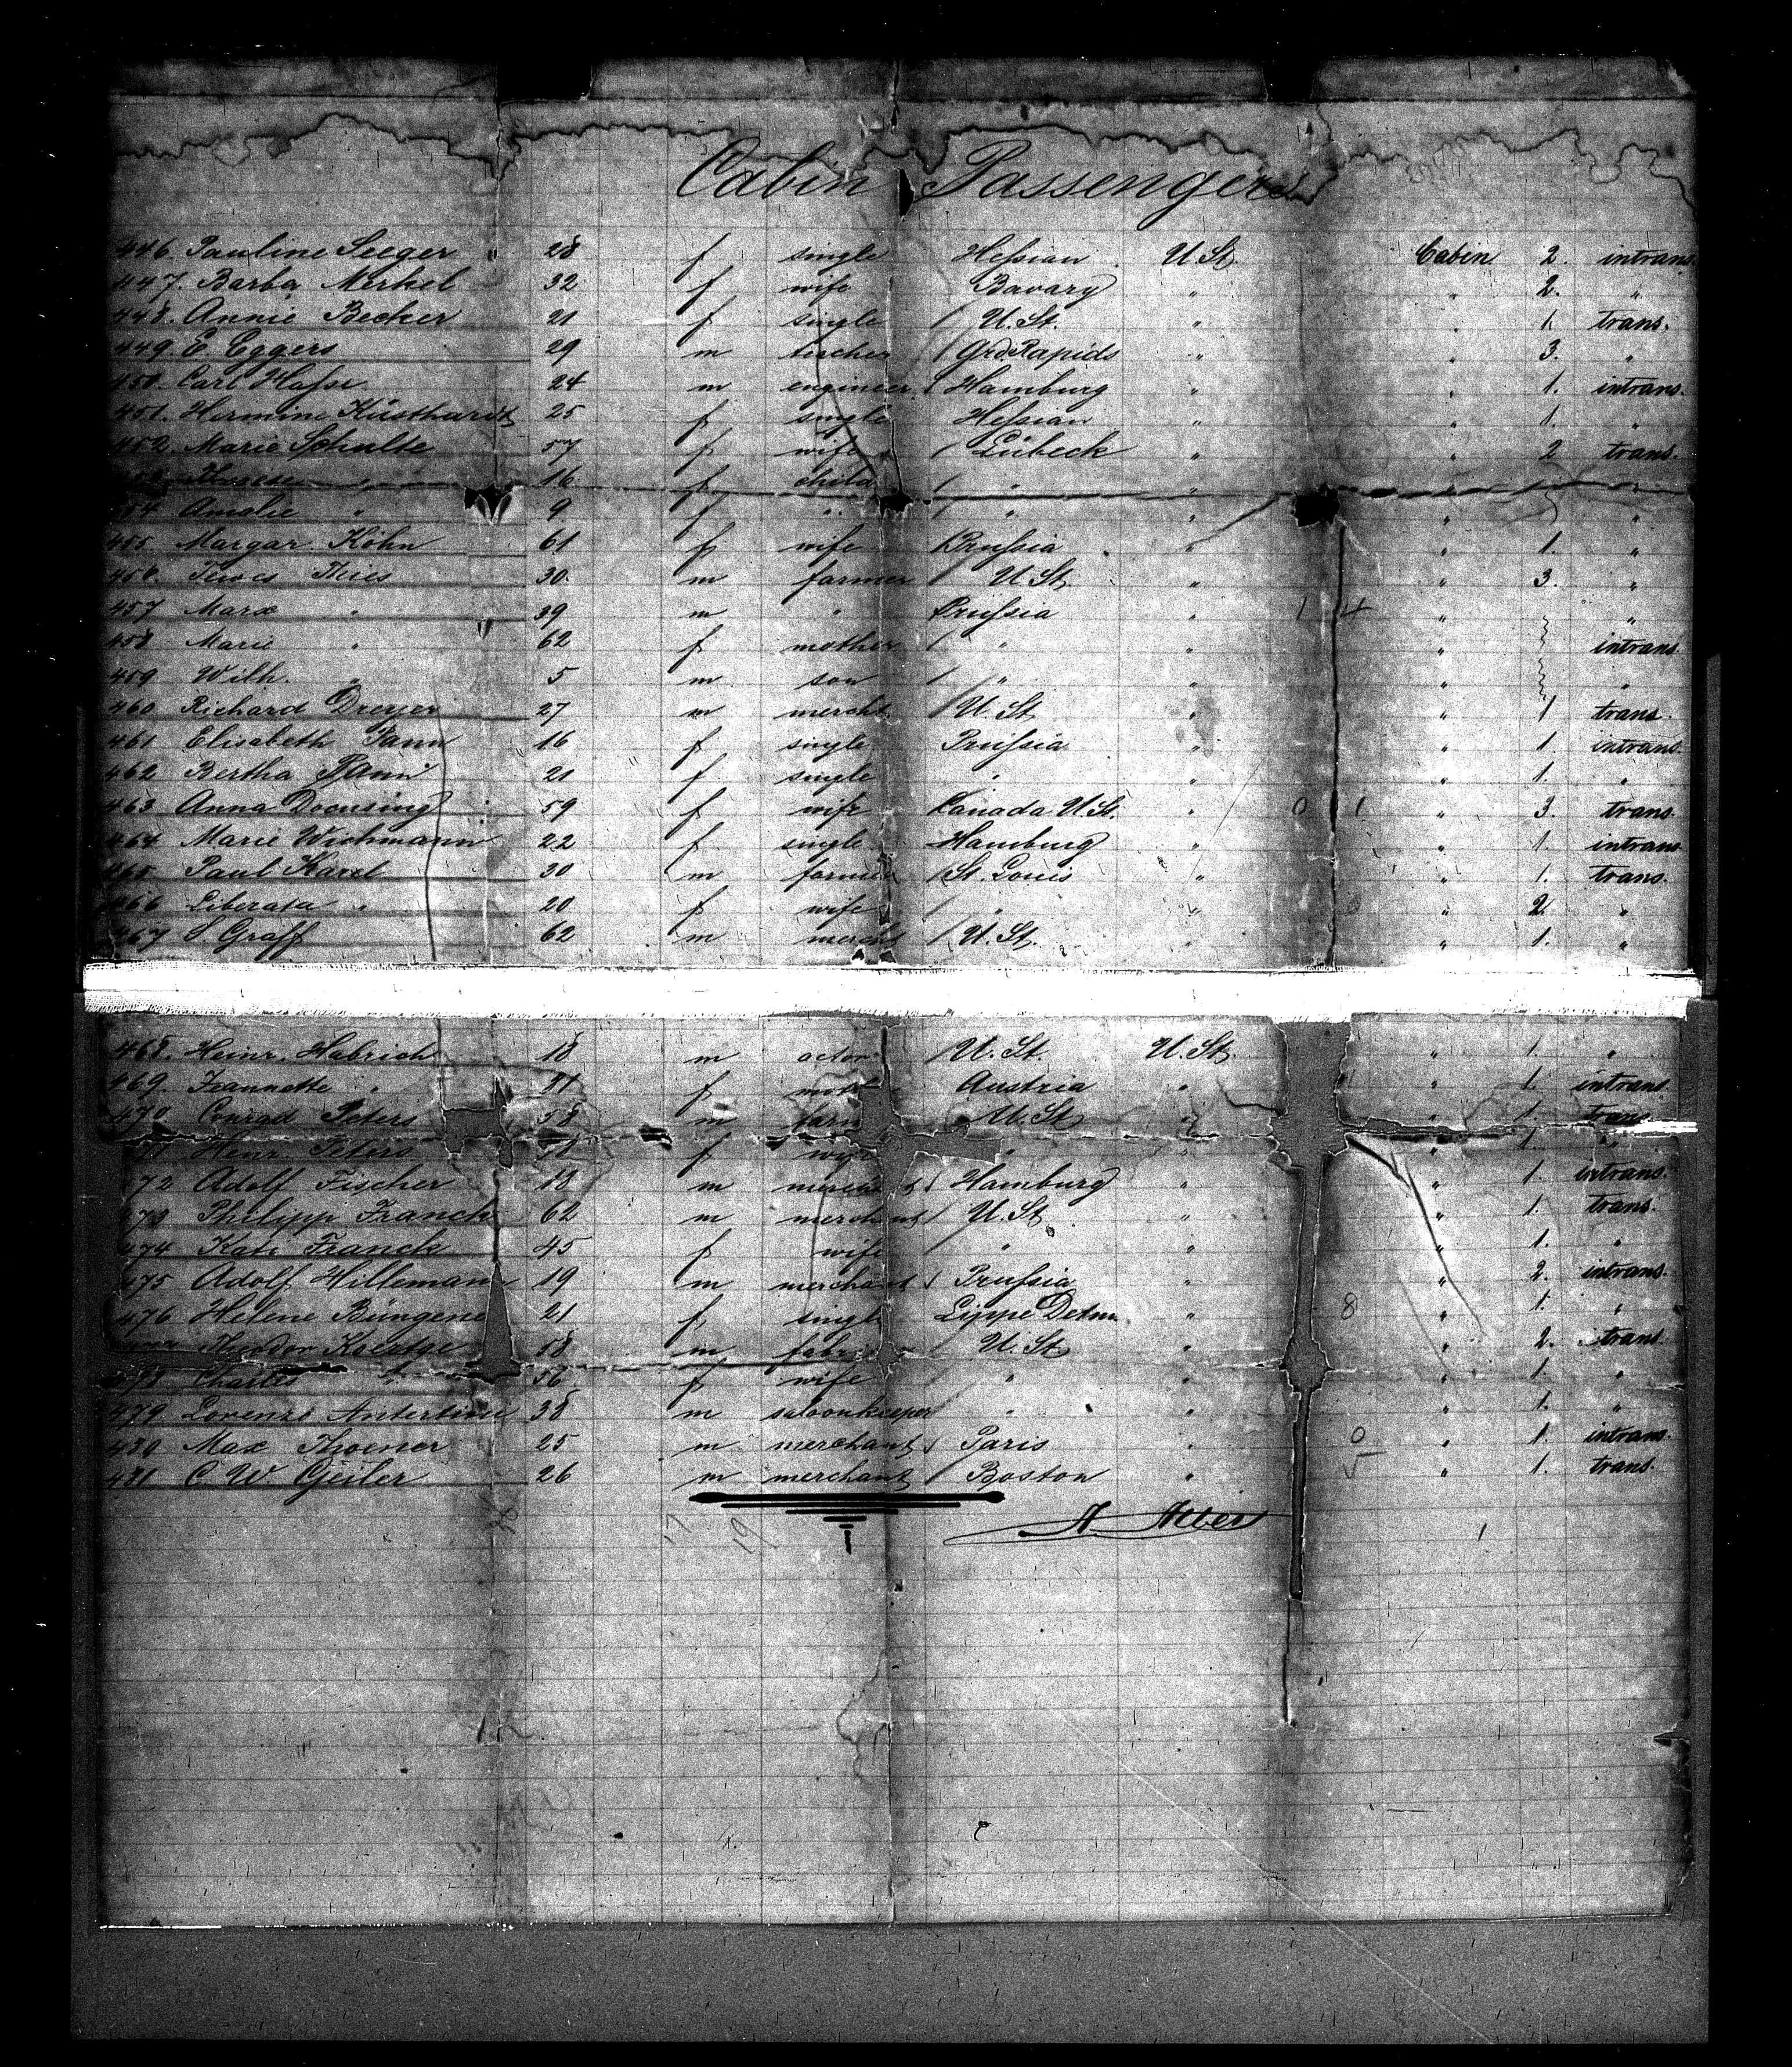 Cabin Passengers
446. Pauline Seeger 28 f single Hessian U St. Cabin 2. intrans.
447. Barba Merkel 32 f wife Bavary " " 2. "
448. Annie Becker 21 f single U. St. " " 1. trans.
449. E. Eggers 29 m Grd Rapids " " 3. "
450. Carl Hasse 24 m engineer Hamburg " " 1. intrans.
451. Hermine Küsthardt 25 f single Hessian " " 1. "
452. Marie Schulte 57 f wife Lübeck " " 2 trans.
" 16 f child " "
Amalie " 9 f " " " " "
455. Margar. Köhn 61 f wife Prussia " " 1. "
456. Thies 30. m farmer U St. " " 3. "
457 Marx " 39 m " Prussia " 1 4 " "
458 Marie " 62 f mother " " " intrans.
459 Wilh. " 5 m son " " " "
460 Richard Dreyer 27 m mercht. U. St. " " 1 trans.
461 Elisabeth 16 f single Prussia " " 1. intrans.
462 Bertha 21 f single " " " 1. "
463 Anna Doensing 59 f wife Canada U. St. " 0 1 " 3. trans.
464 Marie Wichmann 22 f single Hamburg " " 1. intrans
465 Paul 30 m farmer St. Louis " " 1. trans.
466 Liberata " 20 f wife " " " 2. "
467 S. Graff 62 m mercht U. St. " " 1. "
468. Heinr. Habrich 18 m actor U. St. U. St. " 1. "
469 Jeannette " f Austria " " 1. intrans.
470 Conrad Peters 58 m U. St. " " 1. trans.
Henr. Peters f " " " 1. "
472 Adolf Fischer 18 m merchant Hamburg " " 1. intrans.
473 Philipp Franck 62 m merchant U. St. " " 1. trans.
474 Kate Franck 45 f wife " " " 1. "
475 Adolf Hillemann 19 m merchant Prussia " " 2. intrans.
476 Helene Büngene 21 f single Lippe Detm. " 8 " 1. "
Theodor Koertge 58 m U. St. " " 2. trans
56 f wife " " " 1. "
479 Lorenzo 38 m saloonkeeper " " " 1. "
480 Max Thoener 25 m merchant Paris " 0 " 1. intrans.
481 C. W. Geiler 26 m merchant Boston " " 1. trans.
17 19